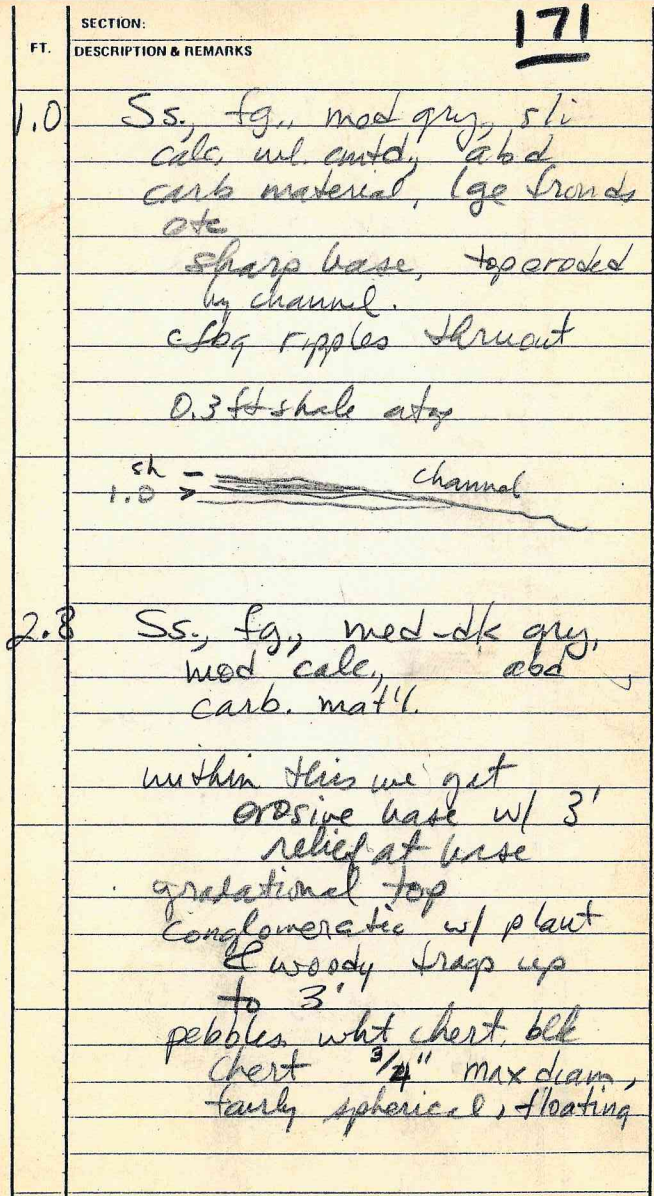 SECTION:
171
FT. DESCRIPTION & REMARKS
1.0 Ss., fg., mod gry, sli
calc, wl. cmtd., abd
carb material, lge fronds
etc
sharp base, top eroded
by channel.
csbg ripples thruout
0.3 ft shale atop
sh –
channel
1.0 >
2.8 Ss., fg., med-dk gry,
mod calc., abd
carb. mat'l.
within this we get
erosive base w/ 3'
relief at base
gradational top
conglomeratic w/ plant
& woody frags up
to 3'
pebbles wht chert, blk
chert 3/4" max diam,
fairly spherical, floating